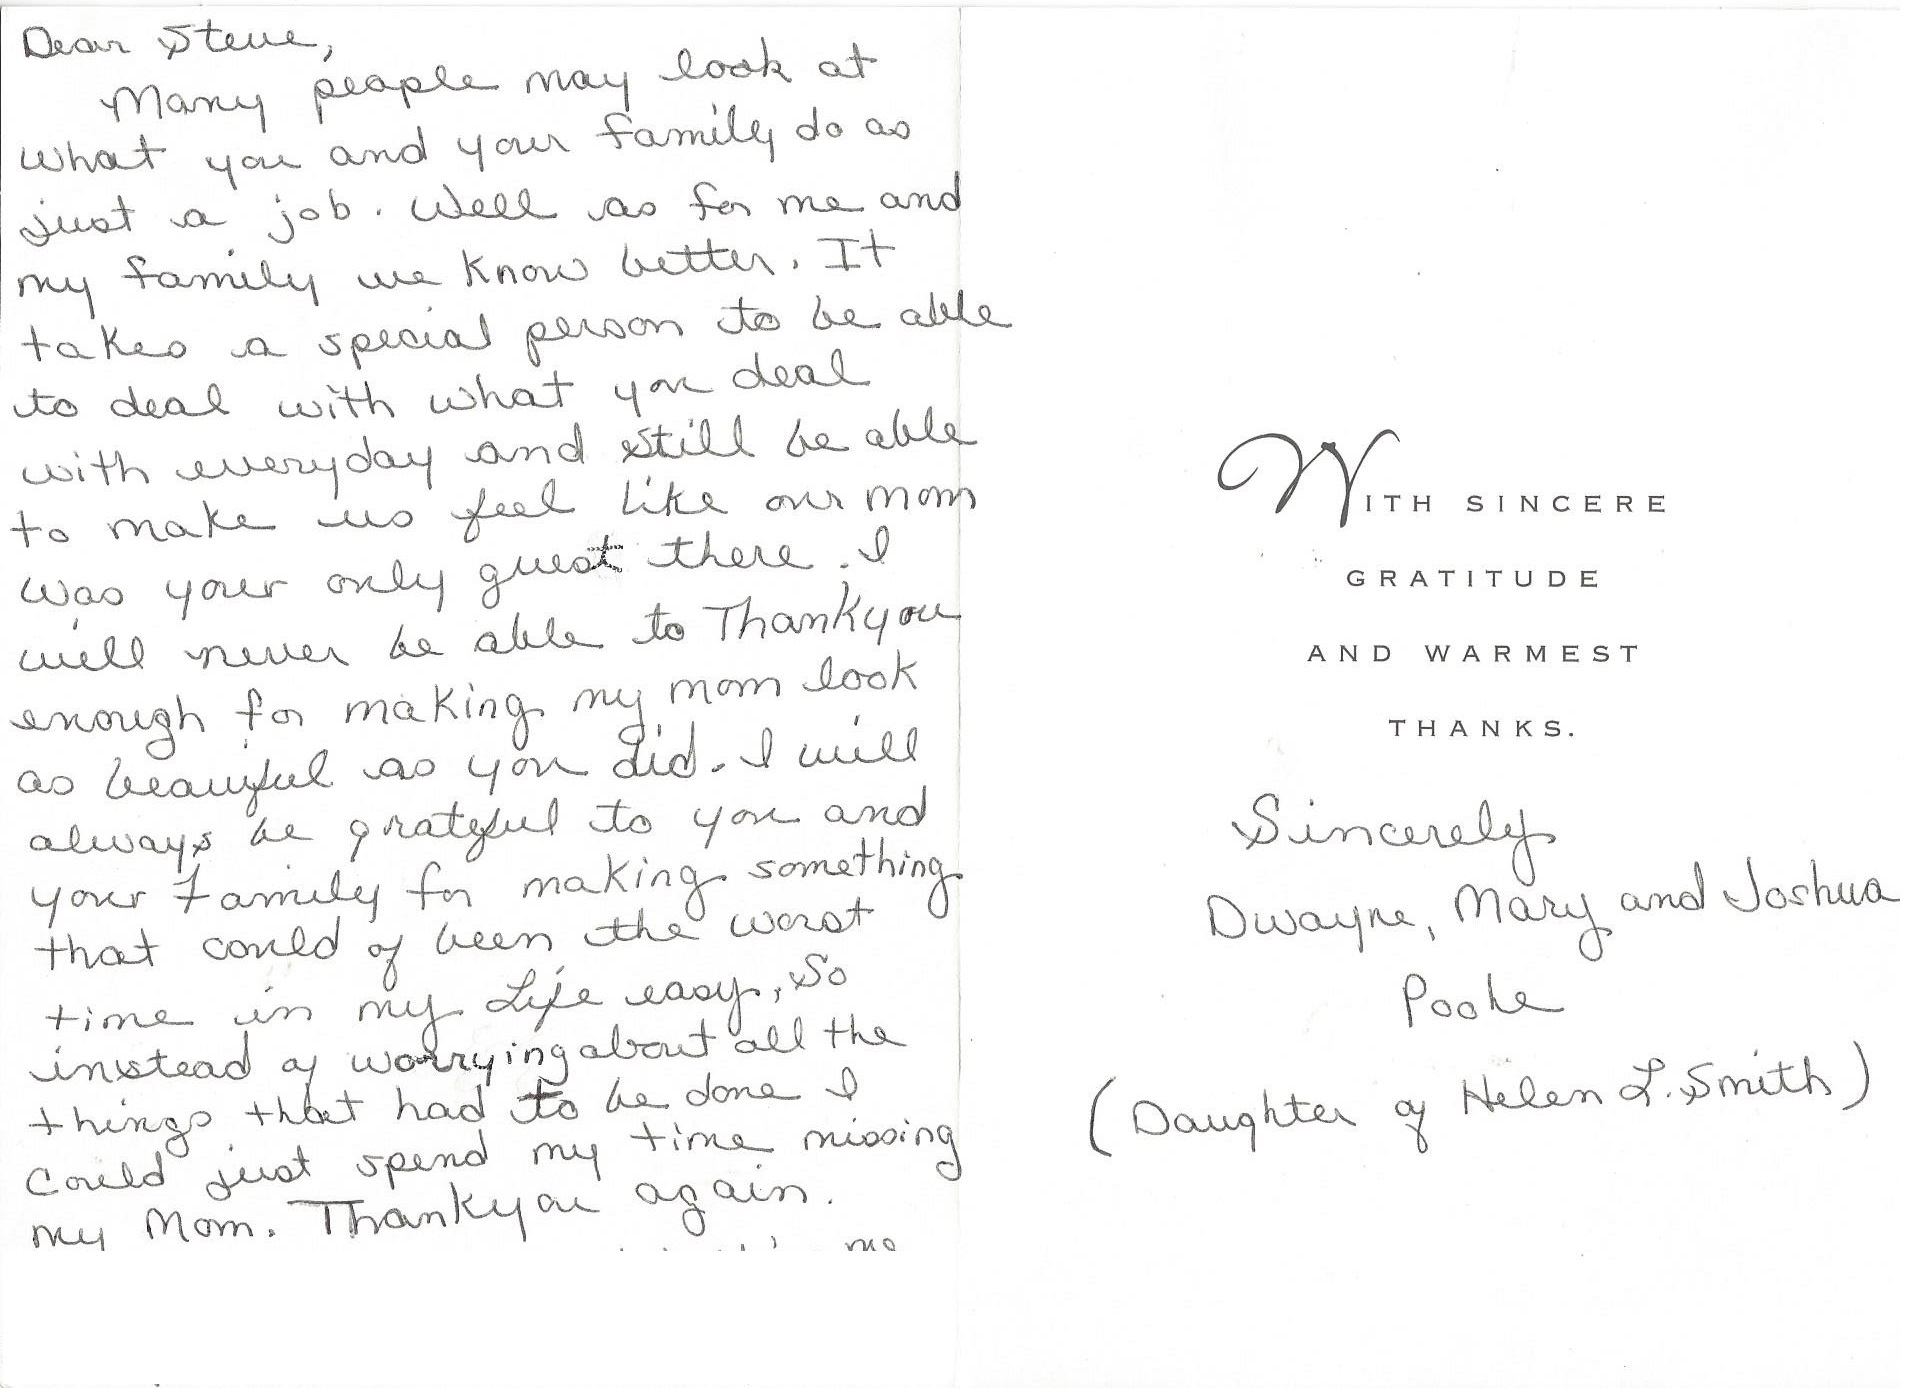 Dear Steve,
Many people may look at
what you and your family do as
just a job. Well as for me and
my family we know better. It
takes a special person to be able
to deal with what you deal
with everyday and still be able
to make us feel like our mom
was your only guest there. I
will never be able to Thankyou
enough for making my mom look
as beauiful as you did. I will
always be grateful to you and
your family for making something
that could of been the worst
time in my Life easy, So
instead of worrying about all the
things that had to be done I
Could just spend my time missing
my Mom. Thankyou again.
WITH SINCERE
GRATITUDE
AND WARMEST
THANKS.
Sincerely
Dwayne, Mary and Joshua
(Daughter of Helen L. Smith)